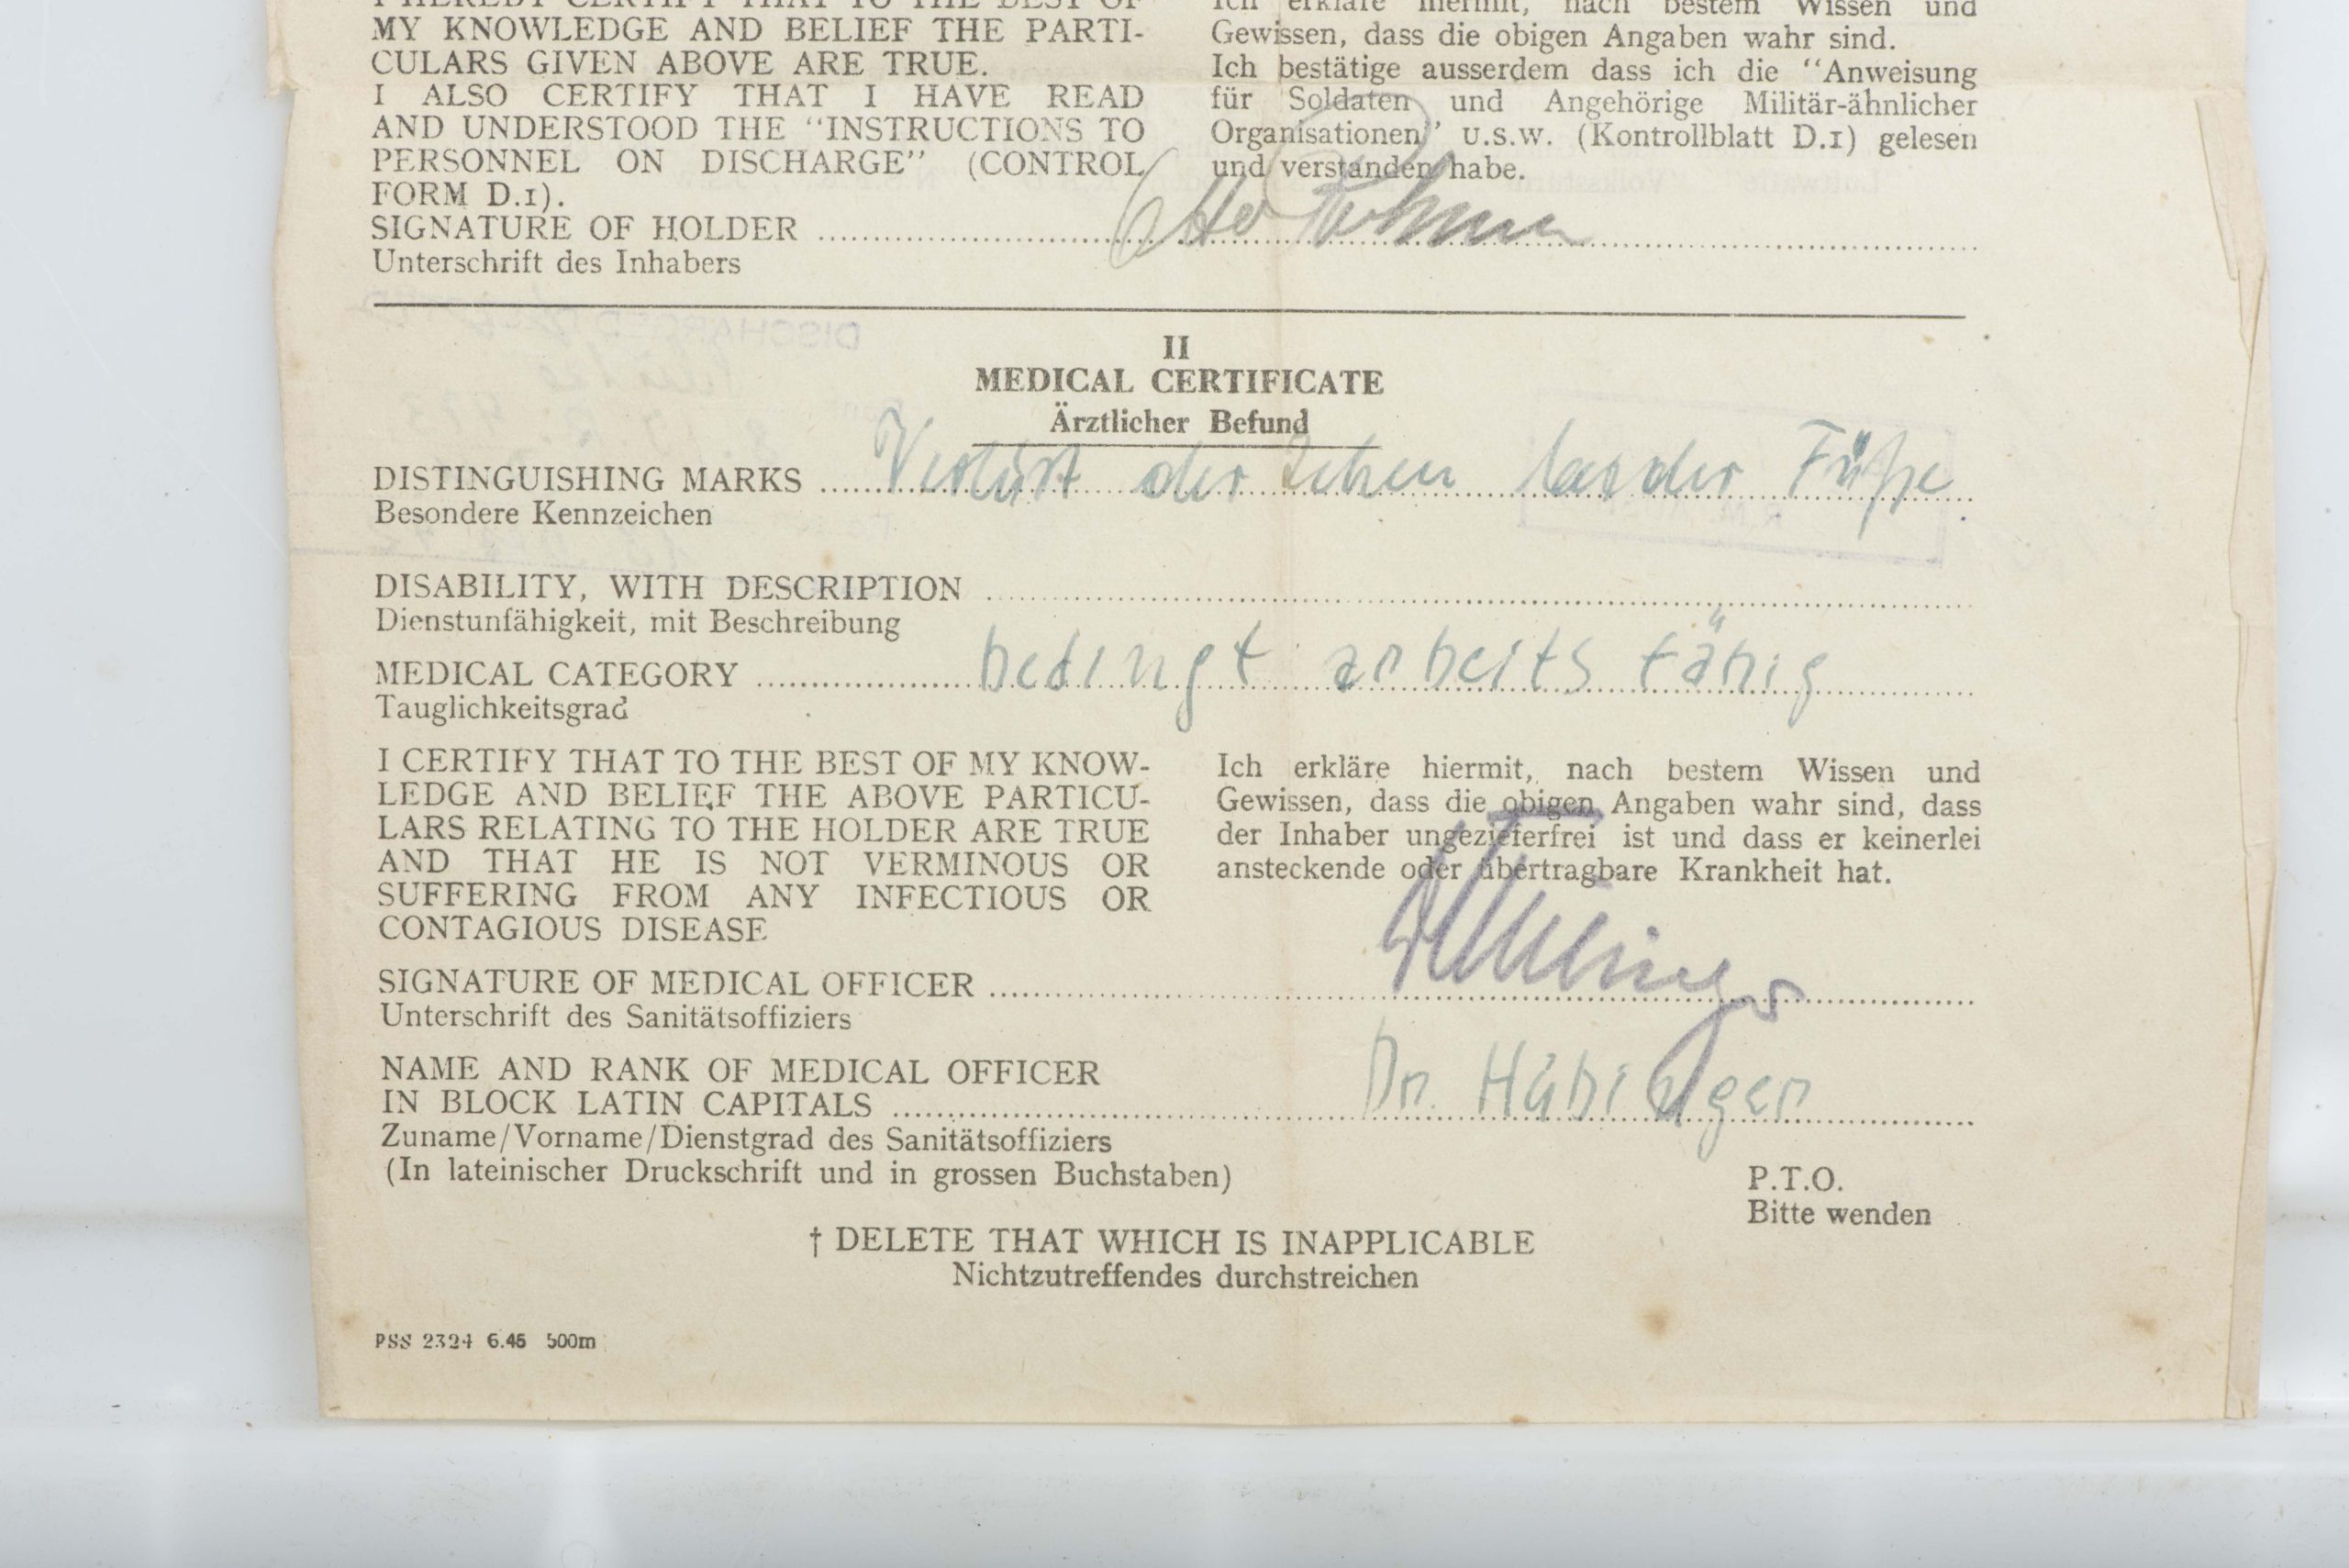 I HEREBY CERTIFY THAT TO THE BEST OF
MY KNOWLEDGE AND BELIEF THE PARTI-
CULARS GIVEN ABOVE ARE TRUE.
I ALSO CERTIFY THAT I HAVE READ
AND UNDERSTOOD THE "INSTRUCTIONS TO
PERSONNEL ON DISCHARGE" (CONTROL
FORM D.1).
Ich erkläre hiermit, nach bestem Wissen und
Gewissen, dass die obigen Angaben wahr sind.
Ich bestätige ausserdem dass ich die "Anweisung
für Soldaten und Angehörige Militär-ähnlicher
Organisationen" u.s.w. (Kontrollblatt D.1) gelesen
und verstanden habe.
SIGNATURE OF HOLDER Otto
Unterschrift des Inhabers
II
MEDICAL CERTIFICATE
Ärztlicher Befund
DISTINGUISHING MARKS Verlust der Zehen beider Füße
Besondere Kennzeichen
DISABILITY, WITH DESCRIPTION
Dienstunfähigkeit, mit Beschreibung
MEDICAL CATEGORY bedingt arbeitsfähig
Tauglichkeitsgrad
I CERTIFY THAT TO THE BEST OF MY KNOW-
LEDGE AND BELIEF THE ABOVE PARTICU-
LARS RELATING TO THE HOLDER ARE TRUE
AND THAT HE IS NOT VERMINOUS OR
SUFFERING FROM ANY INFECTIOUS OR
CONTAGIOUS DISEASE
Ich erkläre hiermit, nach bestem Wissen und
Gewissen, dass die obigen Angaben wahr sind, dass
der Inhaber ungezieferfrei ist und dass er keinerlei
ansteckende oder übertragbare Krankheit hat.
SIGNATURE OF MEDICAL OFFICER
Unterschrift des Sanitätsoffiziers
NAME AND RANK OF MEDICAL OFFICER
IN BLOCK LATIN CAPITALS Dr. Hübinger
Zuname/Vorname/Dienstgrad des Sanitätsoffiziers
(In lateinischer Druckschrift und in grossen Buchstaben)
P.T.O.
Bitte wenden
† DELETE THAT WHICH IS INAPPLICABLE
Nichtzutreffendes durchstreichen
PSS 2324 6.45 500m